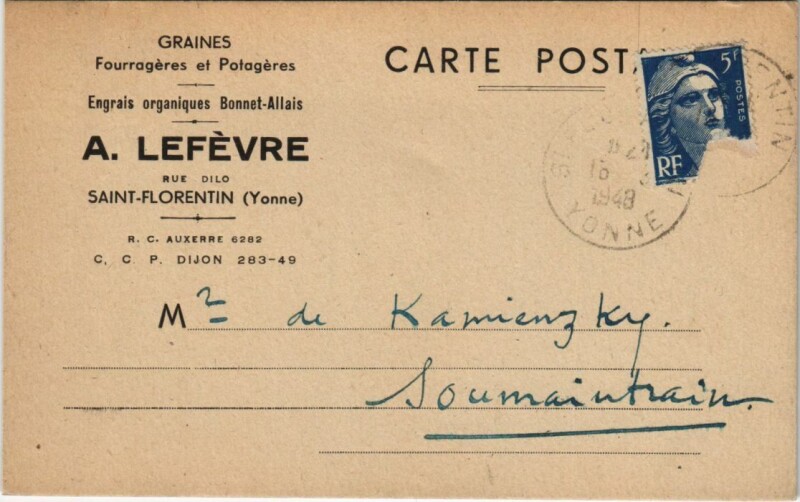 GRAINES
Fourragères et Potagères
Engrais organiques Bonnet-Allais
A. LEFÈVRE
RUE DILO
SAINT-FLORENTIN (Yonne)
R. C. AUXERRE 6282
C. C. P. DIJON 283-49
CARTE POSTA
5F
POSTES
RF
RENTIN
16
1948
YONNE
Mr de Kamienzky.
Soumaintrain.